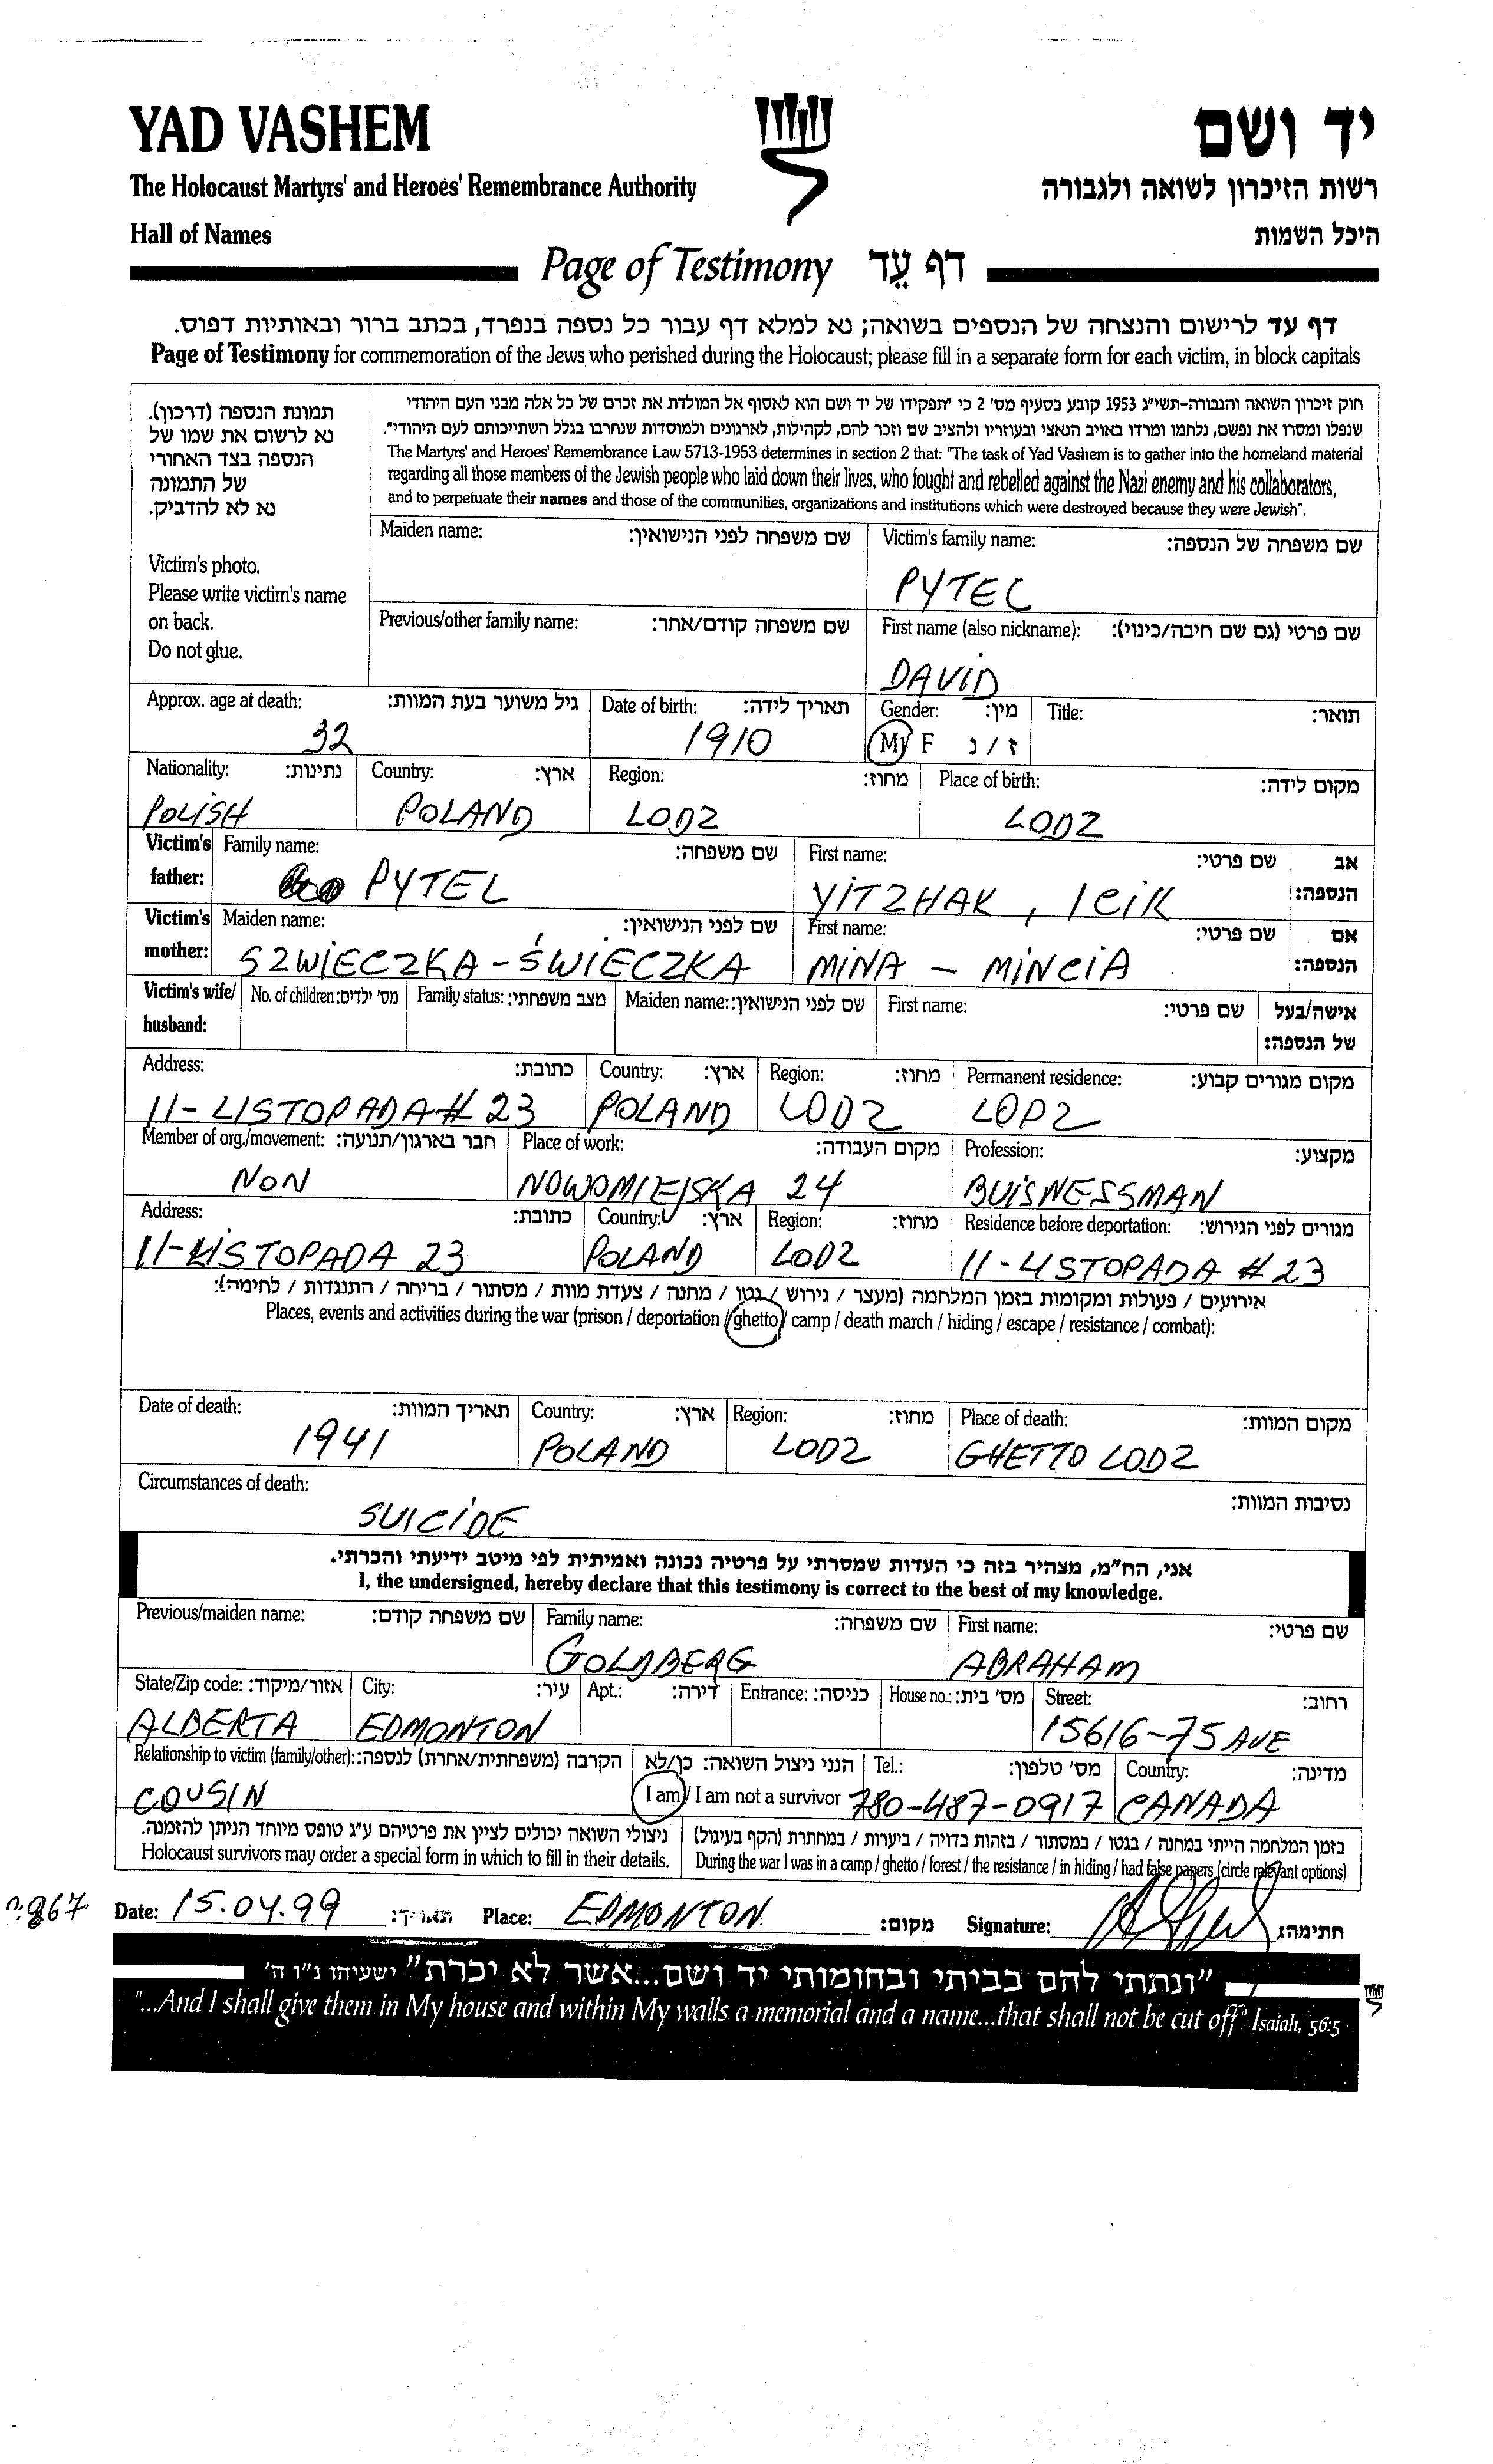 YAD VASHEM
יד ושם
The Holocaust Martyrs' and Heroes' Remembrance Authority
רשות הזיכרון לשואה ולגבורה
Hall of Names
היכל השמות
Page of Testimony דף עֵד
דף עד לרישום והנצחה של הנספים בשואה; נא למלא דף עבור כל נספה בנפרד, בכתב ברור ובאותיות דפוס.
Page of Testimony for commemoration of the Jews who perished during the Holocaust; please fill in a separate form for each victim, in block capitals
תמונת הנספה (דרכון).
נא לרשום את שמו של
הנספה בצד האחורי
של התמונה
נא לא להדביק.
Victim's photo.
Please write victim's name
on back.
Do not glue.
חוק זיכרון השואה והגבורה-תשי"ג 1953 קובע בסעיף מס' 2 כי "תפקידו של יד ושם הוא לאסוף אל המולדת את זכרם של כל אלה מבני העם היהודי
שנפלו ומסרו את נפשם, נלחמו ומרדו באויב הנאצי ובעוזריו ולהציב שם וזכר להם, לקהילות, לארגונים ולמוסדות שנחרבו בגלל השתייכותם לעם היהודי".
The Martyrs' and Heroes' Remembrance Law 5713-1953 determines in section 2 that: "The task of Yad Vashem is to gather into the homeland material
regarding all those members of the Jewish people who laid down their lives, who fought and rebelled against the Nazi enemy and his collaborators,
and to perpetuate their names and those of the communities, organizations and institutions which were destroyed because they were Jewish".
Maiden name: שם משפחה לפני הנישואין: Victim's family name: שם משפחה של הנספה:
PYTEL
Previous/other family name: שם משפחה קודם/אחר: First name (also nickname): שם פרטי (גם שם חיבה/כינוי):
DAVID
Approx. age at death: גיל משוער בעת המוות: Date of birth: תאריך לידה: Gender: מין: Title: תואר:
32 1910 M/ F ז / נ
Nationality: נתינות: Country: ארץ: Region: מחוז: Place of birth: מקום לידה:
POLISH POLAND LODZ LODZ
Victim's father: Family name: שם משפחה: First name: שם פרטי: אב הנספה:
PYTEL YITZHAK, ICIK
Victim's mother: Maiden name: שם לפני הנישואין: First name: שם פרטי: אם הנספה:
SZWIECZKA - ŚWIECZKA MINA - MINCIA
Victim's wife/ husband: No. of children: מס' ילדים: Family status: מצב משפחתי: Maiden name: שם לפני הנישואין: First name: שם פרטי: אישה/בעל של הנספה:
Address: כתובת: Country: ארץ: Region: מחוז: Permanent residence: מקום מגורים קבוע:
11-LISTOPADA # 23 POLAND LODZ LODZ
Member of org./movement: חבר בארגון/תנועה: Place of work: מקום העבודה: Profession: מקצוע:
NON NOWOMIEJSKA 24 BUISNESSMAN
Address: כתובת: Country: ארץ: Region: מחוז: Residence before deportation: מגורים לפני הגירוש:
11-LISTOPADA 23 POLAND LODZ 11-LISTOPADA # 23
אירועים / פעולות ומקומות בזמן המלחמה (מעצר / גירוש / גטו / מחנה / צעדת מוות / מסתור / בריחה / התנגדות / לחימה):
Places, events and activities during the war (prison / deportation / ghetto / camp / death march / hiding / escape / resistance / combat):
Date of death: תאריך המוות: Country: ארץ: Region: מחוז: Place of death: מקום המוות:
1941 POLAND LODZ GHETTO LODZ
Circumstances of death: נסיבות המוות:
SUICIDE
אני, הח"מ, מצהיר בזה כי העדות שמסרתי על פרטיה נכונה ואמיתית לפי מיטב ידיעתי והכרתי.
I, the undersigned, hereby declare that this testimony is correct to the best of my knowledge.
Previous/maiden name: שם משפחה קודם: Family name: שם משפחה: First name: שם פרטי:
GOLDBERG ABRAHAM
State/Zip code: אזור/מיקוד: City: עיר: Apt.: דירה: Entrance: כניסה: House no.: מס' בית: Street: רחוב:
ALBERTA EDMONTON 15616-75 AVE
Relationship to victim (family/other): הקרבה (משפחתית/אחרת) לנספה: הנני ניצול השואה: כן/לא Tel.: מס' טלפון: Country: מדינה:
COUSIN I am / I am not a survivor 780-487-0917 CANADA
ניצולי השואה יכולים לציין את פרטיהם ע"ג טופס מיוחד הניתן להזמנה. בזמן המלחמה הייתי במחנה / בגטו / במסתור / בזהות בדויה / ביערות / במחתרת (הקף בעיגול)
Holocaust survivors may order a special form in which to fill in their details. During the war I was in a camp / ghetto / forest / the resistance / in hiding / had false papers (circle relevant options)
Date: 15.04.99 תאריך: Place: EDMONTON מקום: Signature: חתימה:
"ונתתי להם בביתי ובחומותי יד ושם...אשר לא יכרת" ישעיהו נ"ו ה'
"...And I shall give them in My house and within My walls a memorial and a name...that shall not be cut off" Isaiah, 56:5